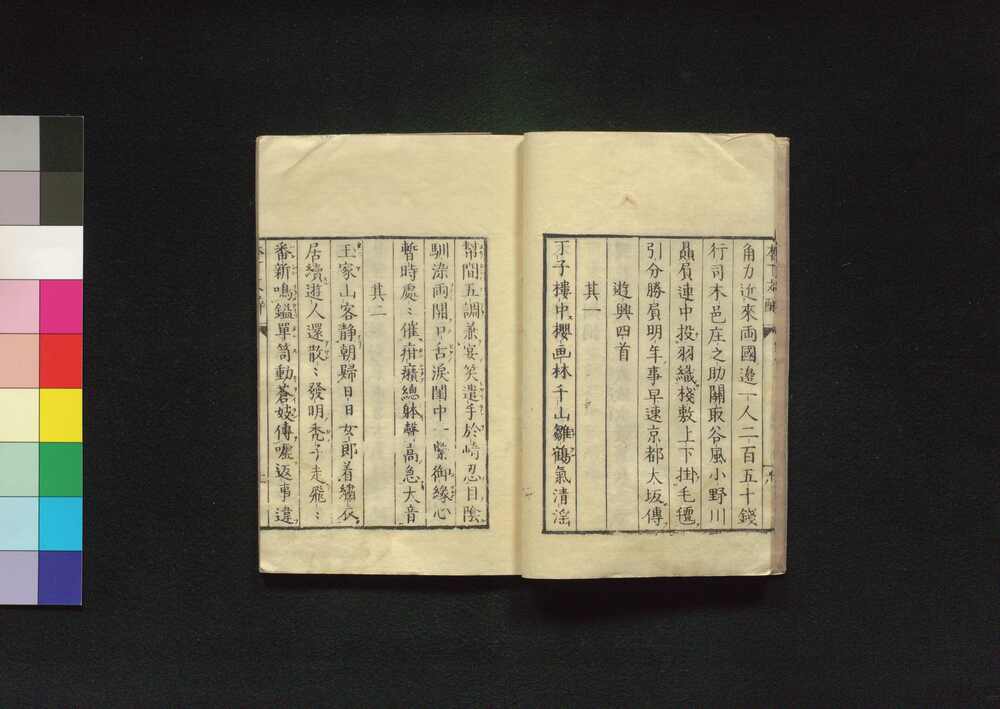 角力近來両國邉一人二百五十錢
行司木邑庄之助關取谷風小野川
贔屓連中投羽織棧敷上下掛毛氊
引分勝屓明年事早速京都大坂傳
遊興四首
其一
丁子樓中櫻画林千山雛鶴氣清滛
幇間五調兼宴笑遣手於崎忍目陰
馴染両閙口舌淚閨中一紮御緣心
暫時處〻催疳癪總躰聲高急大音
其二
玉家山客静朝歸日日女郎着繡衣
居續遊人還散〻發明禿子走飛〻
番新鳴鎰單笥動蒼妓傳嚦返事違